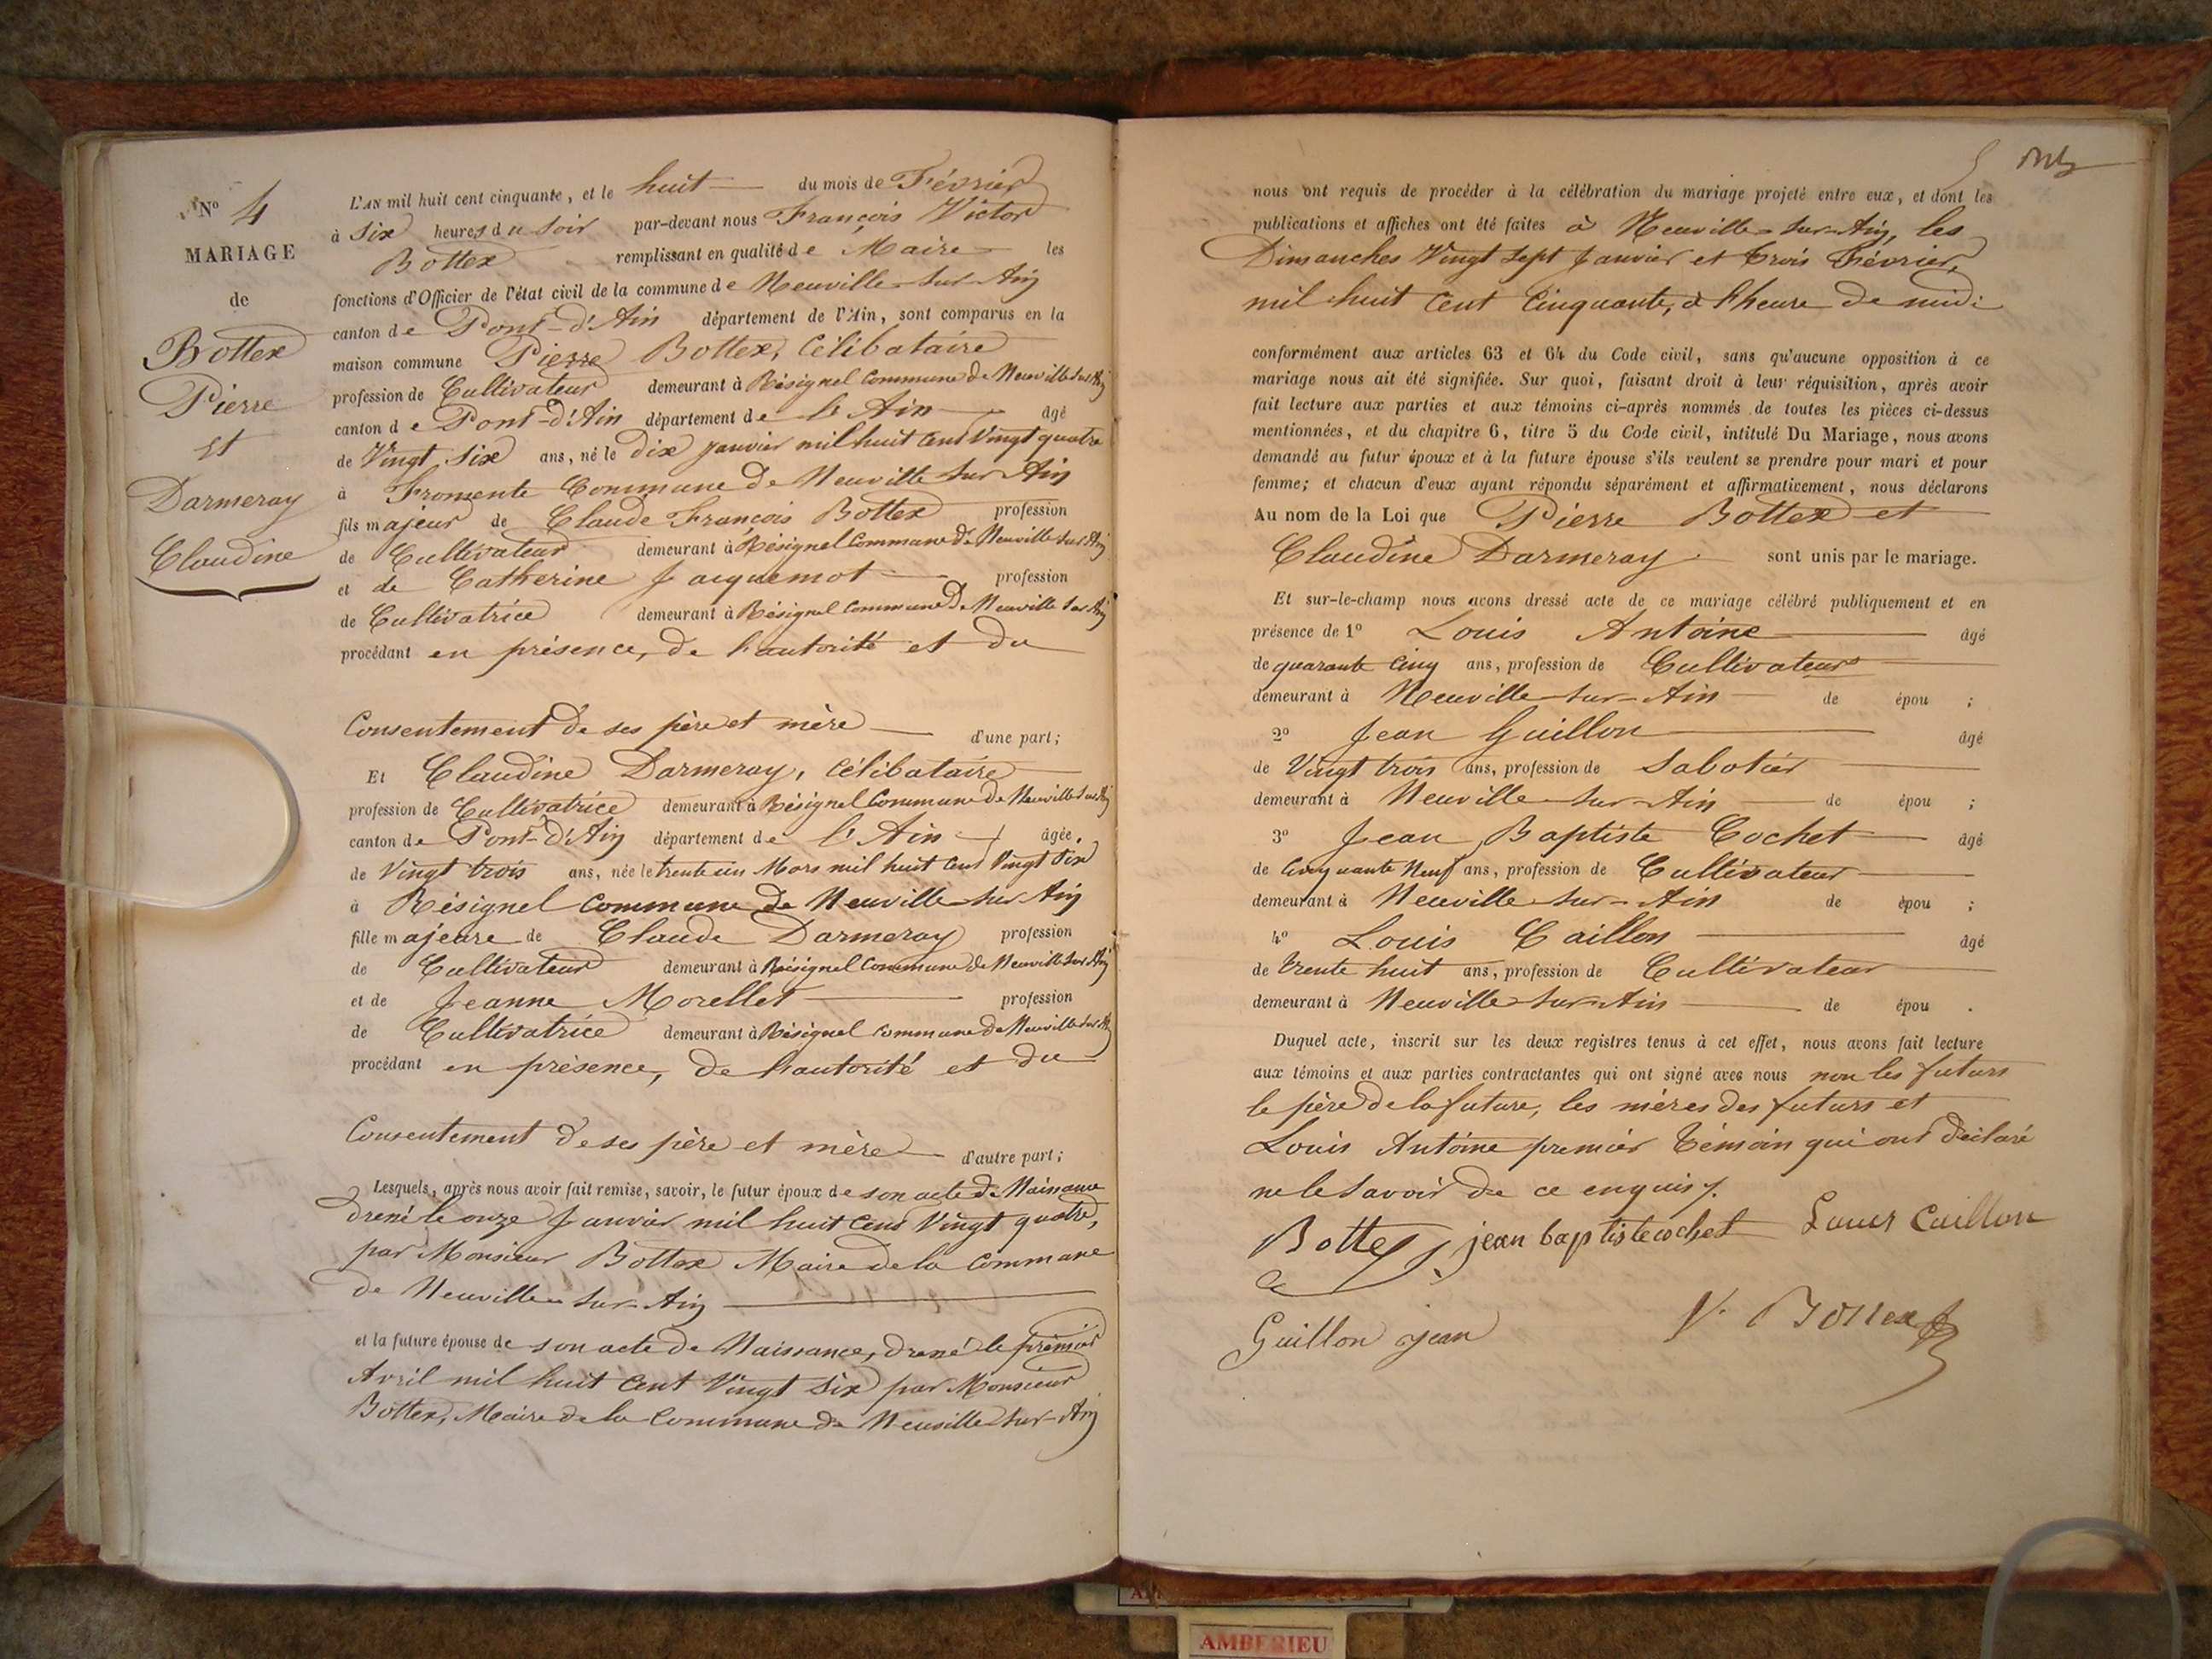 N° 4
MARIAGE
de
Bottex
Pierre
et
Darmeray
Claudine
L'AN mil huit cent cinquante, et le huit du mois de Février
à Six heures du Soir par-devant nous François Victor
Bottex remplissant en qualité de Maire les
fonctions d'Officier de l'état civil de la commune de Neuville-sur-Ain
canton de Pont-d'Ain département de l'Ain, sont comparus en la
maison commune Pierre Bottex, Célibataire
profession de Cultivateur demeurant à Résignel Commune de Neuville sur Ain
canton de Pont-d'Ain département de l'Ain âgé
de Vingt Six ans, né le dix janvier mil huit cent Vingt quatre
à Fromente Commune de Neuville sur Ain
fils majeur de Claude François Bottex profession
de Cultivateur demeurant à Résignel Commune de Neuville sur Ain
et de Catherine Jacquemot profession
de Cultivatrice demeurant à Résignel Commune de Neuville sur Ain
procédant en présence, de l'autorité et du
Consentement de ses père et mère d'une part;
Et Claudine Darmeray, Célibataire
profession de Cultivatrice demeurant à Résignel Commune de Neuville sur Ain
canton de Pont-d'Ain département de l'Ain âgée
de Vingt trois ans, née le trente un Mars mil huit cent Vingt Six
à Résignel Commune de Neuville sur Ain
fille majeure de Claude Darmeray profession
de Cultivateur demeurant à Résignel Commune de Neuville sur Ain
et de Jeanne Morellet profession
de Cultivatrice demeurant à Résignel Commune de Neuville sur Ain
procédant en présence, de l'autorité et du
Consentement de ses père et mère d'autre part;
Lesquels, après nous avoir fait remise, savoir, le futur époux de son acte de Naissance
dressé le onze Janvier mil huit cent Vingt quatre,
par Monsieur Bottex Maire de la Commune
de Neuville-sur-Ain
et la future épouse de son acte de Naissance, dressé le premier
Avril mil huit cent Vingt Six par Monsieur
Bottex, Maire de la Commune de Neuville-sur-Ain
nous ont requis de procéder à la célébration du mariage projeté entre eux, et dont les
publications et affiches ont été faites à Neuville-sur-Ain, les
Dimanches Vingt Sept Janvier et trois Février,
mil huit cent Cinquante, à l'heure de midi
conformément aux articles 63 et 64 du Code civil, sans qu'aucune opposition à ce
mariage nous ait été signifiée. Sur quoi, faisant droit à leur réquisition, après avoir
fait lecture aux parties et aux témoins ci-après nommés de toutes les pièces ci-dessus
mentionnées, et du chapitre 6, titre 5 du Code civil, intitulé Du Mariage, nous avons
demandé au futur époux et à la future épouse s'ils veulent se prendre pour mari et pour
femme; et chacun d'eux ayant répondu séparément et affirmativement, nous déclarons
Au nom de la Loi que Pierre Bottex et
Claudine Darmeray sont unis par le mariage.
Et sur-le-champ nous avons dressé acte de ce mariage célébré publiquement et en
présence de 1° Louis Antoine âgé
de quarante cinq ans, profession de Cultivateur
demeurant à Neuville-sur-Ain de épou ;
2° Jean Guillon âgé
de Vingt trois ans, profession de Sabotier
demeurant à Neuville-sur-Ain de épou ;
3° Jean Baptiste Cochet âgé
de Cinquante Neuf ans, profession de Cultivateur
demeurant à Neuville-sur-Ain de épou ;
4° Louis Caillon âgé
de trente huit ans, profession de Cultivateur
demeurant à Neuville-sur-Ain de épou .
Duquel acte, inscrit sur les deux registres tenus à cet effet, nous avons fait lecture
aux témoins et aux parties contractantes qui ont signé avec nous non les futurs
le père de la future, les mères des futurs et
Louis Antoine premier témoin qui ont déclaré
ne le Savoir de ce enquis /.
Bottex jean baptiste cochet Louis Caillon
Guillon jean V. Bottex
AMBERIEU